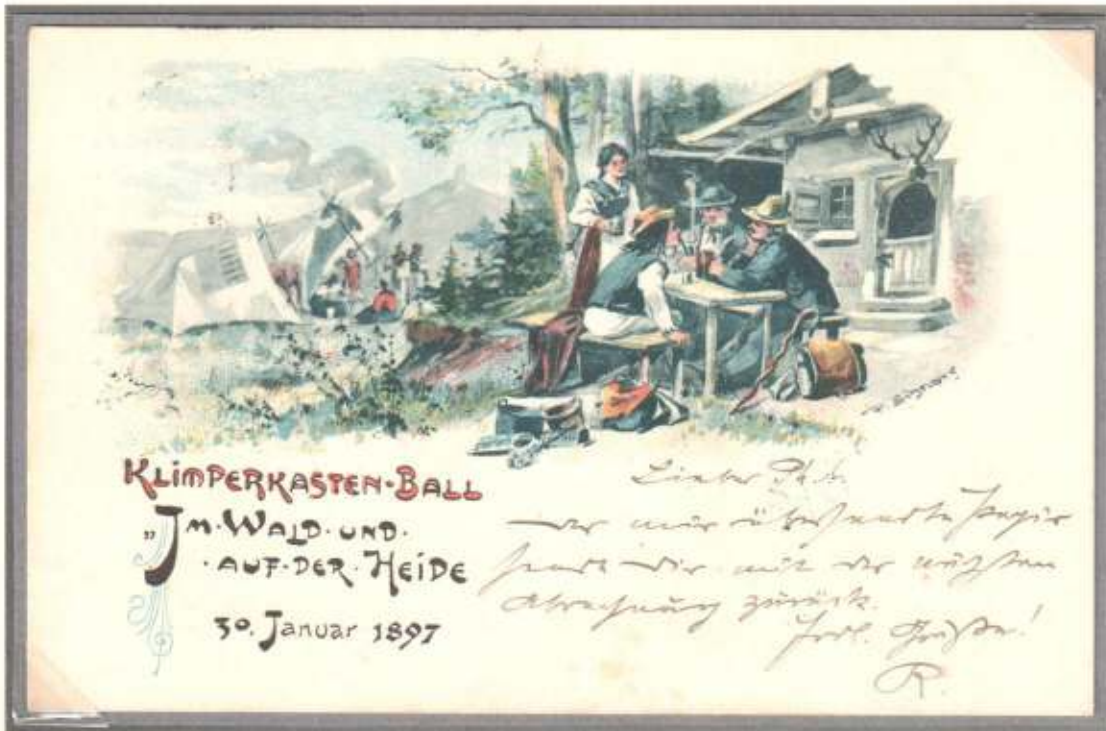 KLIMPERKASTEN-BALL
„IM·WALD·UND·
·AUF·DER·HEIDE
30. Januar 1897
Lieber
der mir übersandte
sende Dir mit der nächsten
Abrechnung zurück.
Frdl. Grüße!
R.